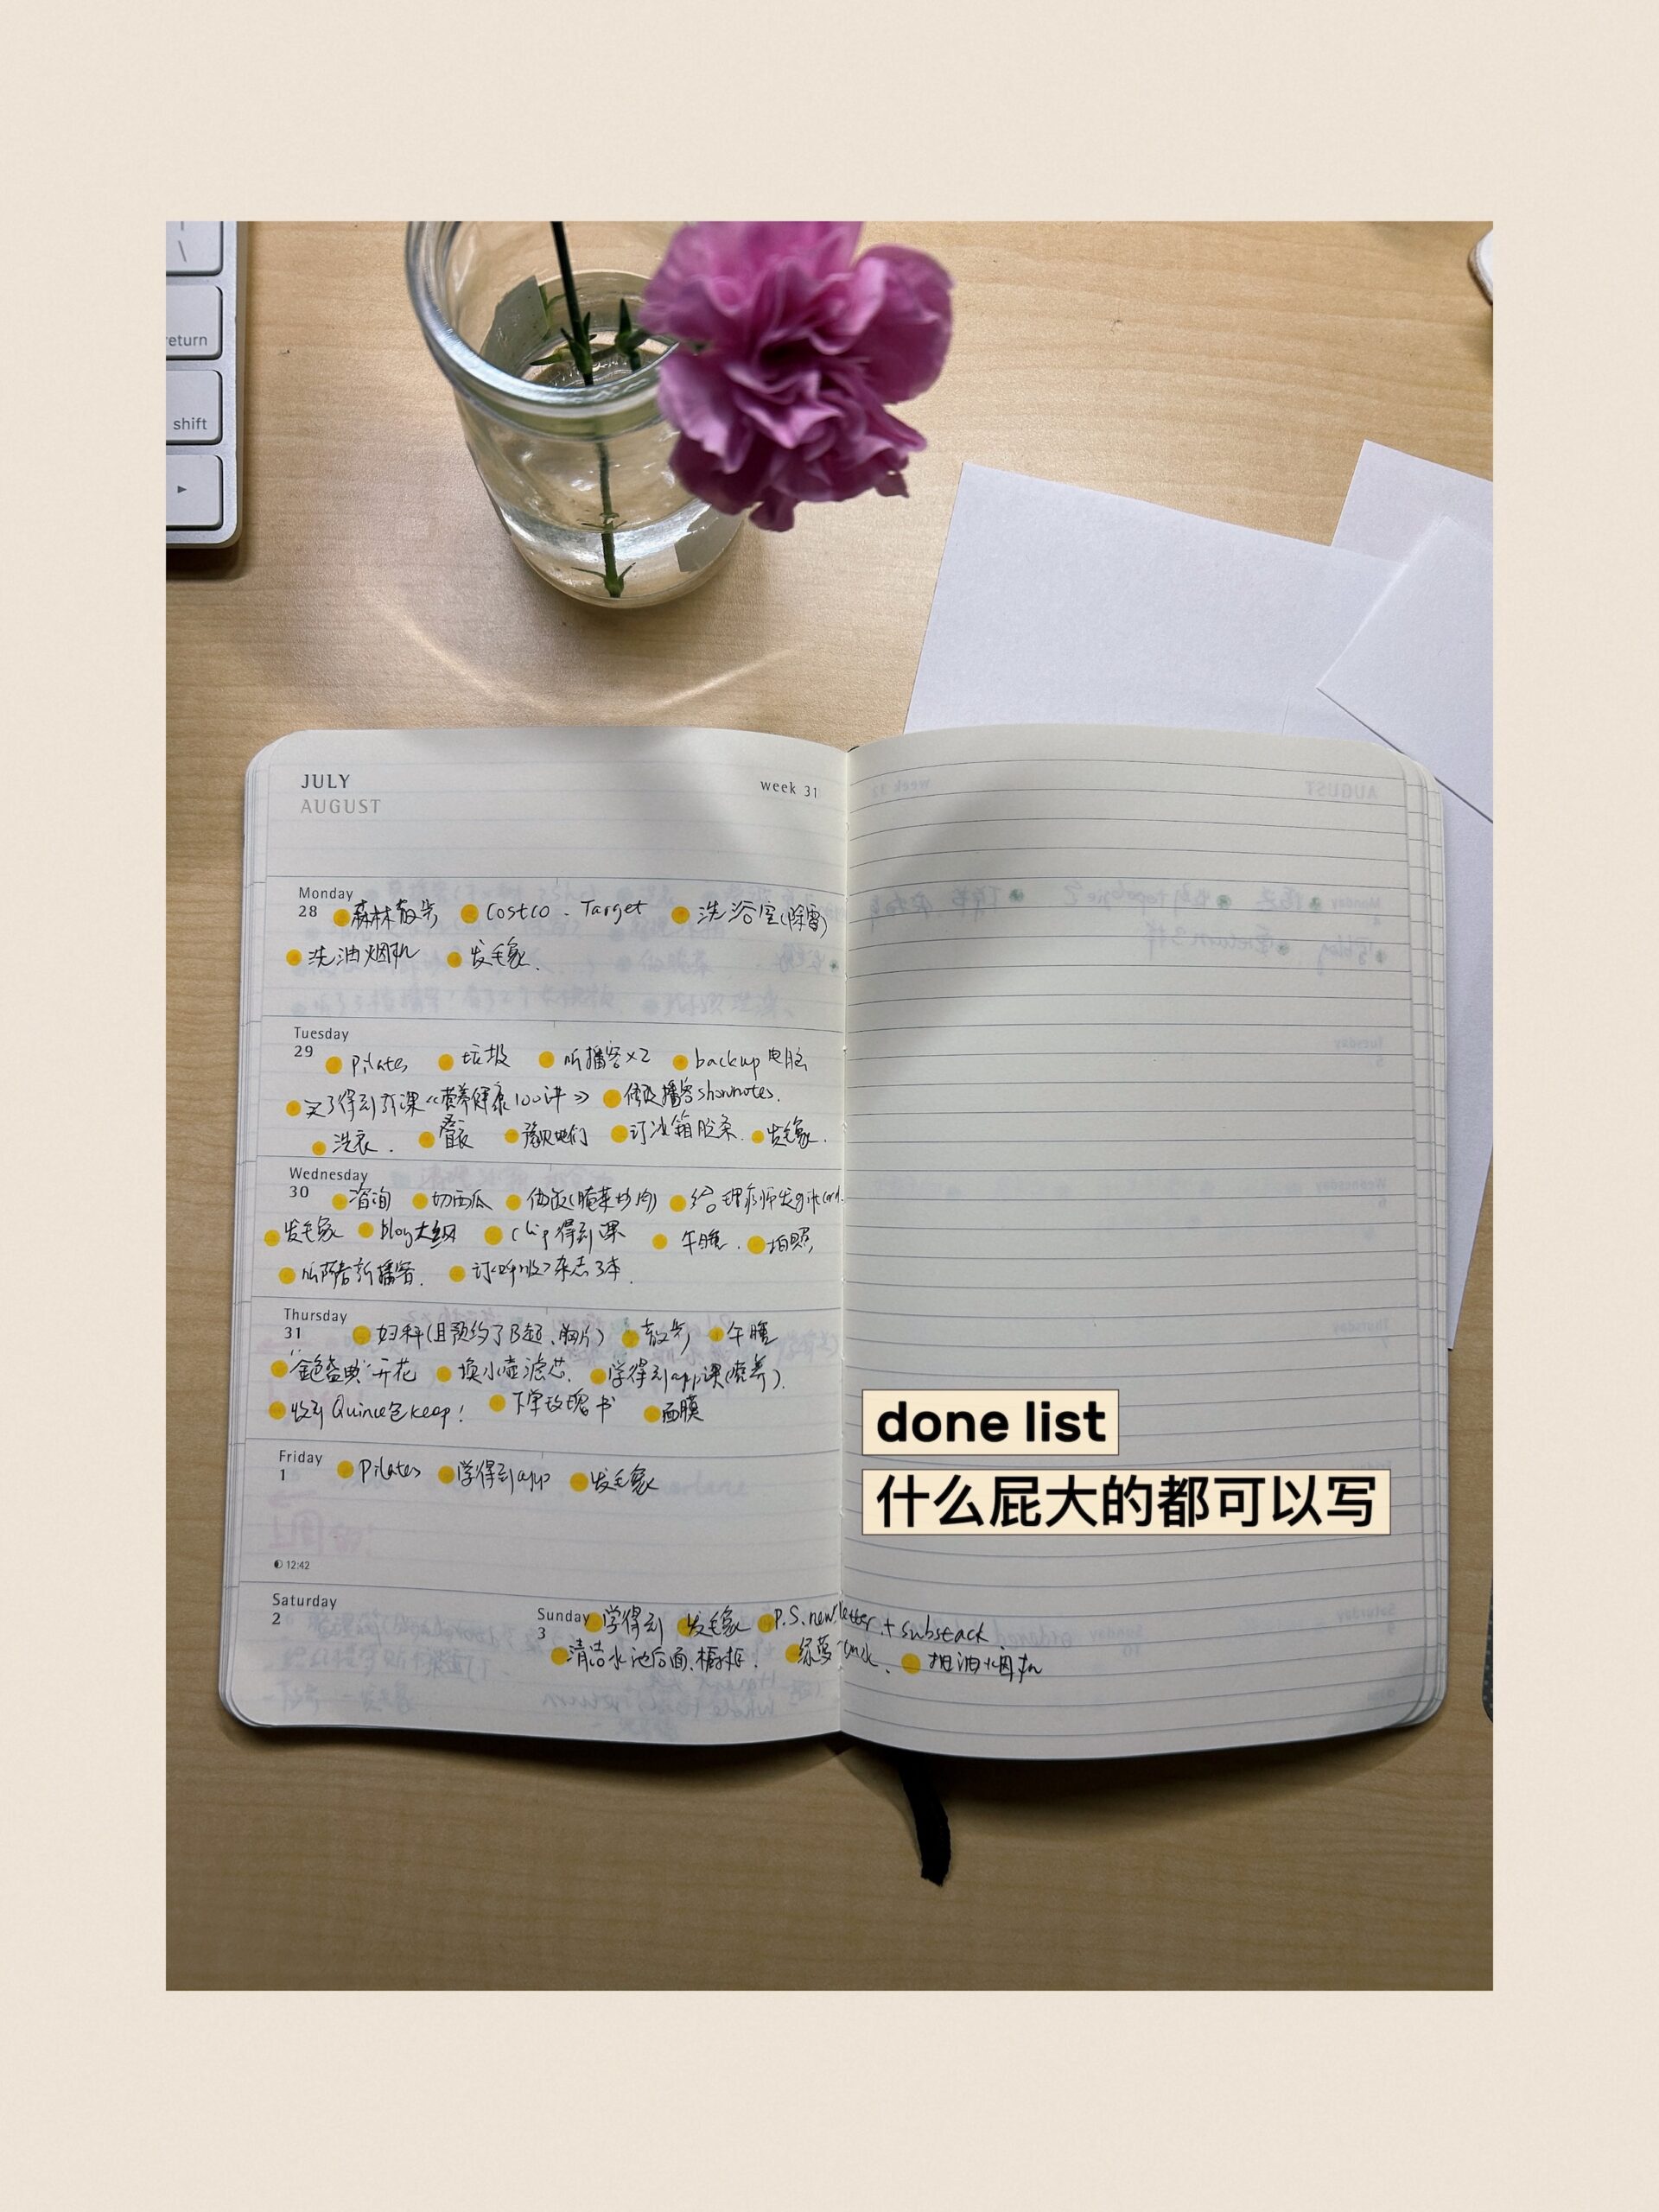 \
return
shift
JULY
AUGUST
week 31
Monday
28 森林散步 Costco . Target 洗浴室(除霉)
洗油烟机 发毛象.
Tuesday
29 Pilates 垃圾 听播客×2 backup 电脑
买了得到新课《营养健康100讲》 修改播客shownotes.
洗衣. 叠衣 订冰箱胶条. 发毛象.
Wednesday
30 咨询 切西瓜 做饭(腌菜炒肉) 给理疗师发gift card.
发毛象 blog大纲 clip得到课 午睡. 拍照,
听 新播客. 订 杂志3本.
Thursday
31 妇科(且预约了B超、胸片) 散步 午睡
"金色盛典"开花 换小壶滤芯. 学得到app课(营养).
收到Quince包keep! 下单玫瑰书 面膜
Friday
1 Pilates 学得到app 发毛象
12:42
Saturday
2
Sunday
3 学得到 发毛象 P.S. newsletter + substack.
清洁水池后面、橱柜. 绿萝 擦油烟机
done list
什么屁大的都可以写